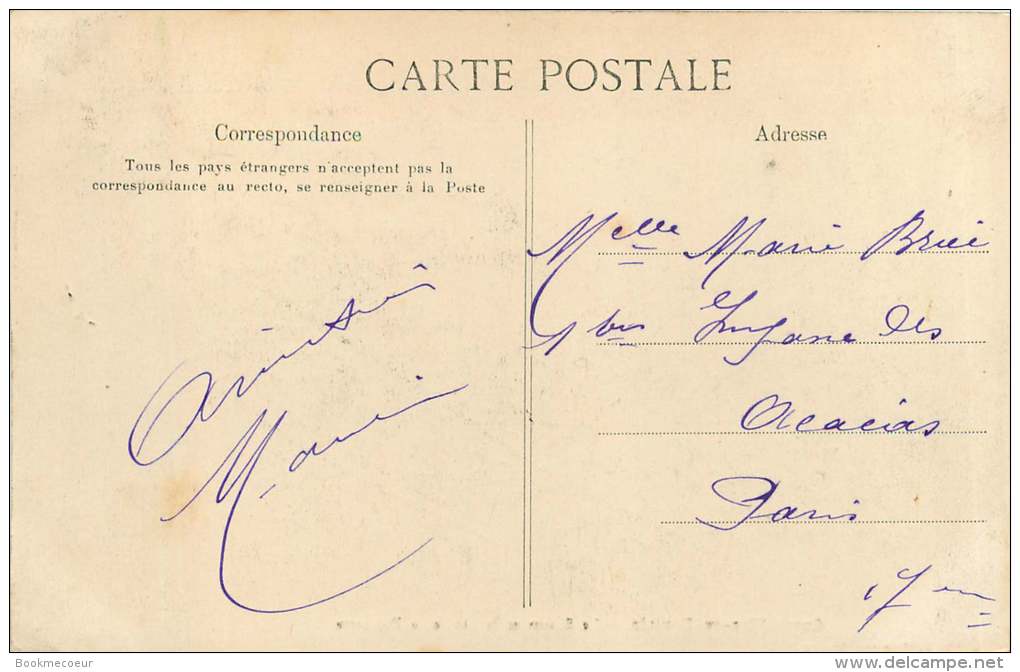 CARTE POSTALE
Correspondance
Tous les pays étrangers n'acceptent pas la
correspondance au recto, se renseigner à la Poste
Marie
Adresse
Melle Marie
bis des
Acacias
Paris
17 em
Bookmecoeur
delcampe.net